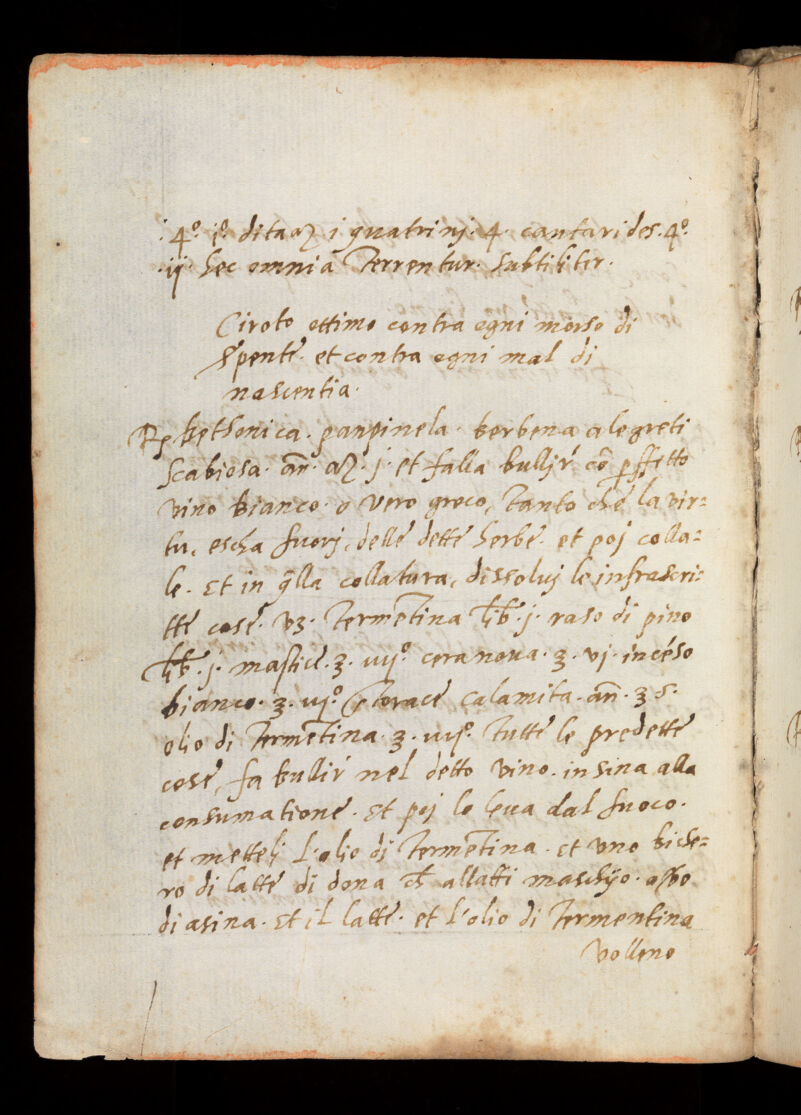 4º. ditta i quatrinj. 4. cantarides. 4º.
ij. hec omnia Terrentur. Subtilitir.
Ciroto ottimo contra ogni morso di
serpente. et contra ogni mal di
nascentia.
Rp bethonica. panpinela. berbena alegreti
Scabiosa. añ. j. et falla bulljr cõ perffetto
vino bianco. o vero greco, Tanto che la vir=
tu, escha fuorj, delle dette herbe. et poj colla=
le. Et in q̃lla collatura, dissoluj le infrascri=
tte cose. vz. Termẽtina lib. j. raso di pino
lib. j. mastice. ʒ. iiij.º cera noua. ʒ. vj. incéso
bianco. ʒ. iij.º storace calamita. añ. ʒ s.
olio di Termẽtina. ʒ. iiijº. Tutte le predette
cose, fa bullir nel detto vino. insina alla
consumatione. Et poj lo leua dal fuoco.
et mettelj l'olio di Termẽtina. et vno bichie=
ro di latte di dona ch̃ allatti maschijo. o
di asina. Et il latte. et l'olio di Termentina
volleno